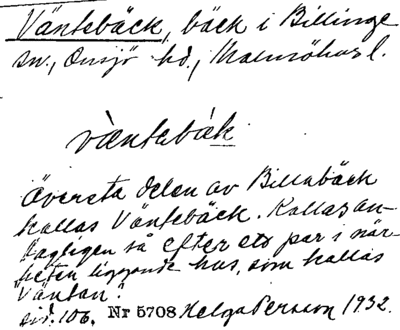 Väntebäck, bäck i Billinge
sn., Onsjö hd., Malmöhus l.
väntebäk
Översta delen av Billabäck
kallas Väntebäck. Kallas an-
tagligen så efter ett par i när-
heten liggande hus, som kallas
"Väntan".
sid. 106. Nr 5708 Helga Persson 1932.